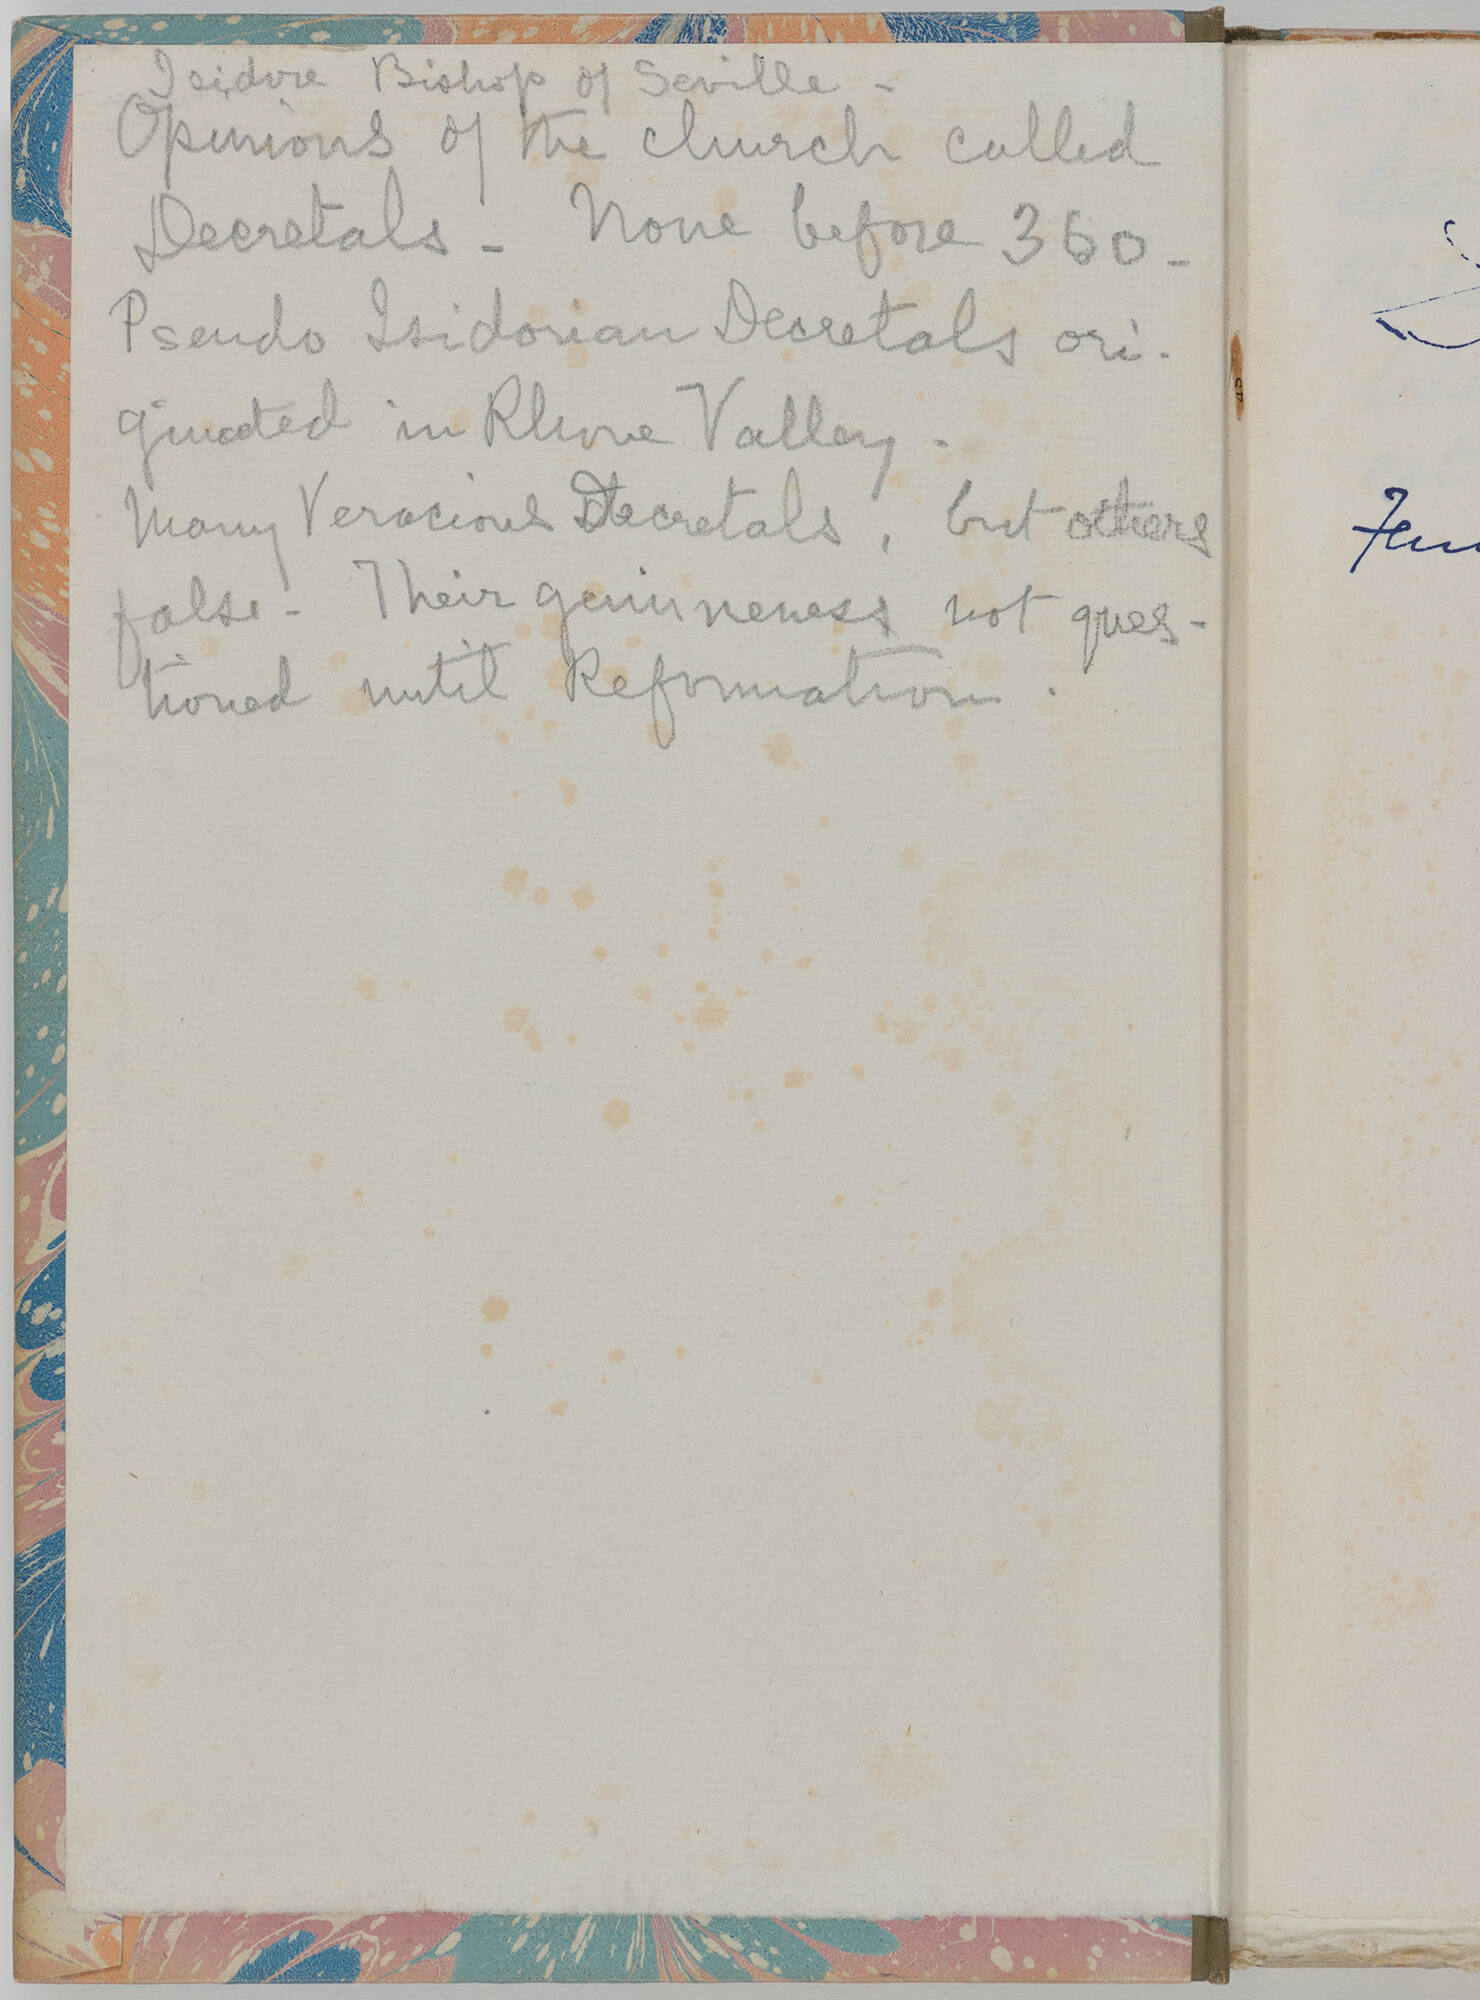 Isidore Bishop of Seville -
Opinions of the church called
Decretals - None before 360 -
Pseudo Isidorian Decretals ori-
ginated in Rhone Valley -
Many Veracious Decretals, but others
false - Their genuineness not ques-
tioned until Reformation.